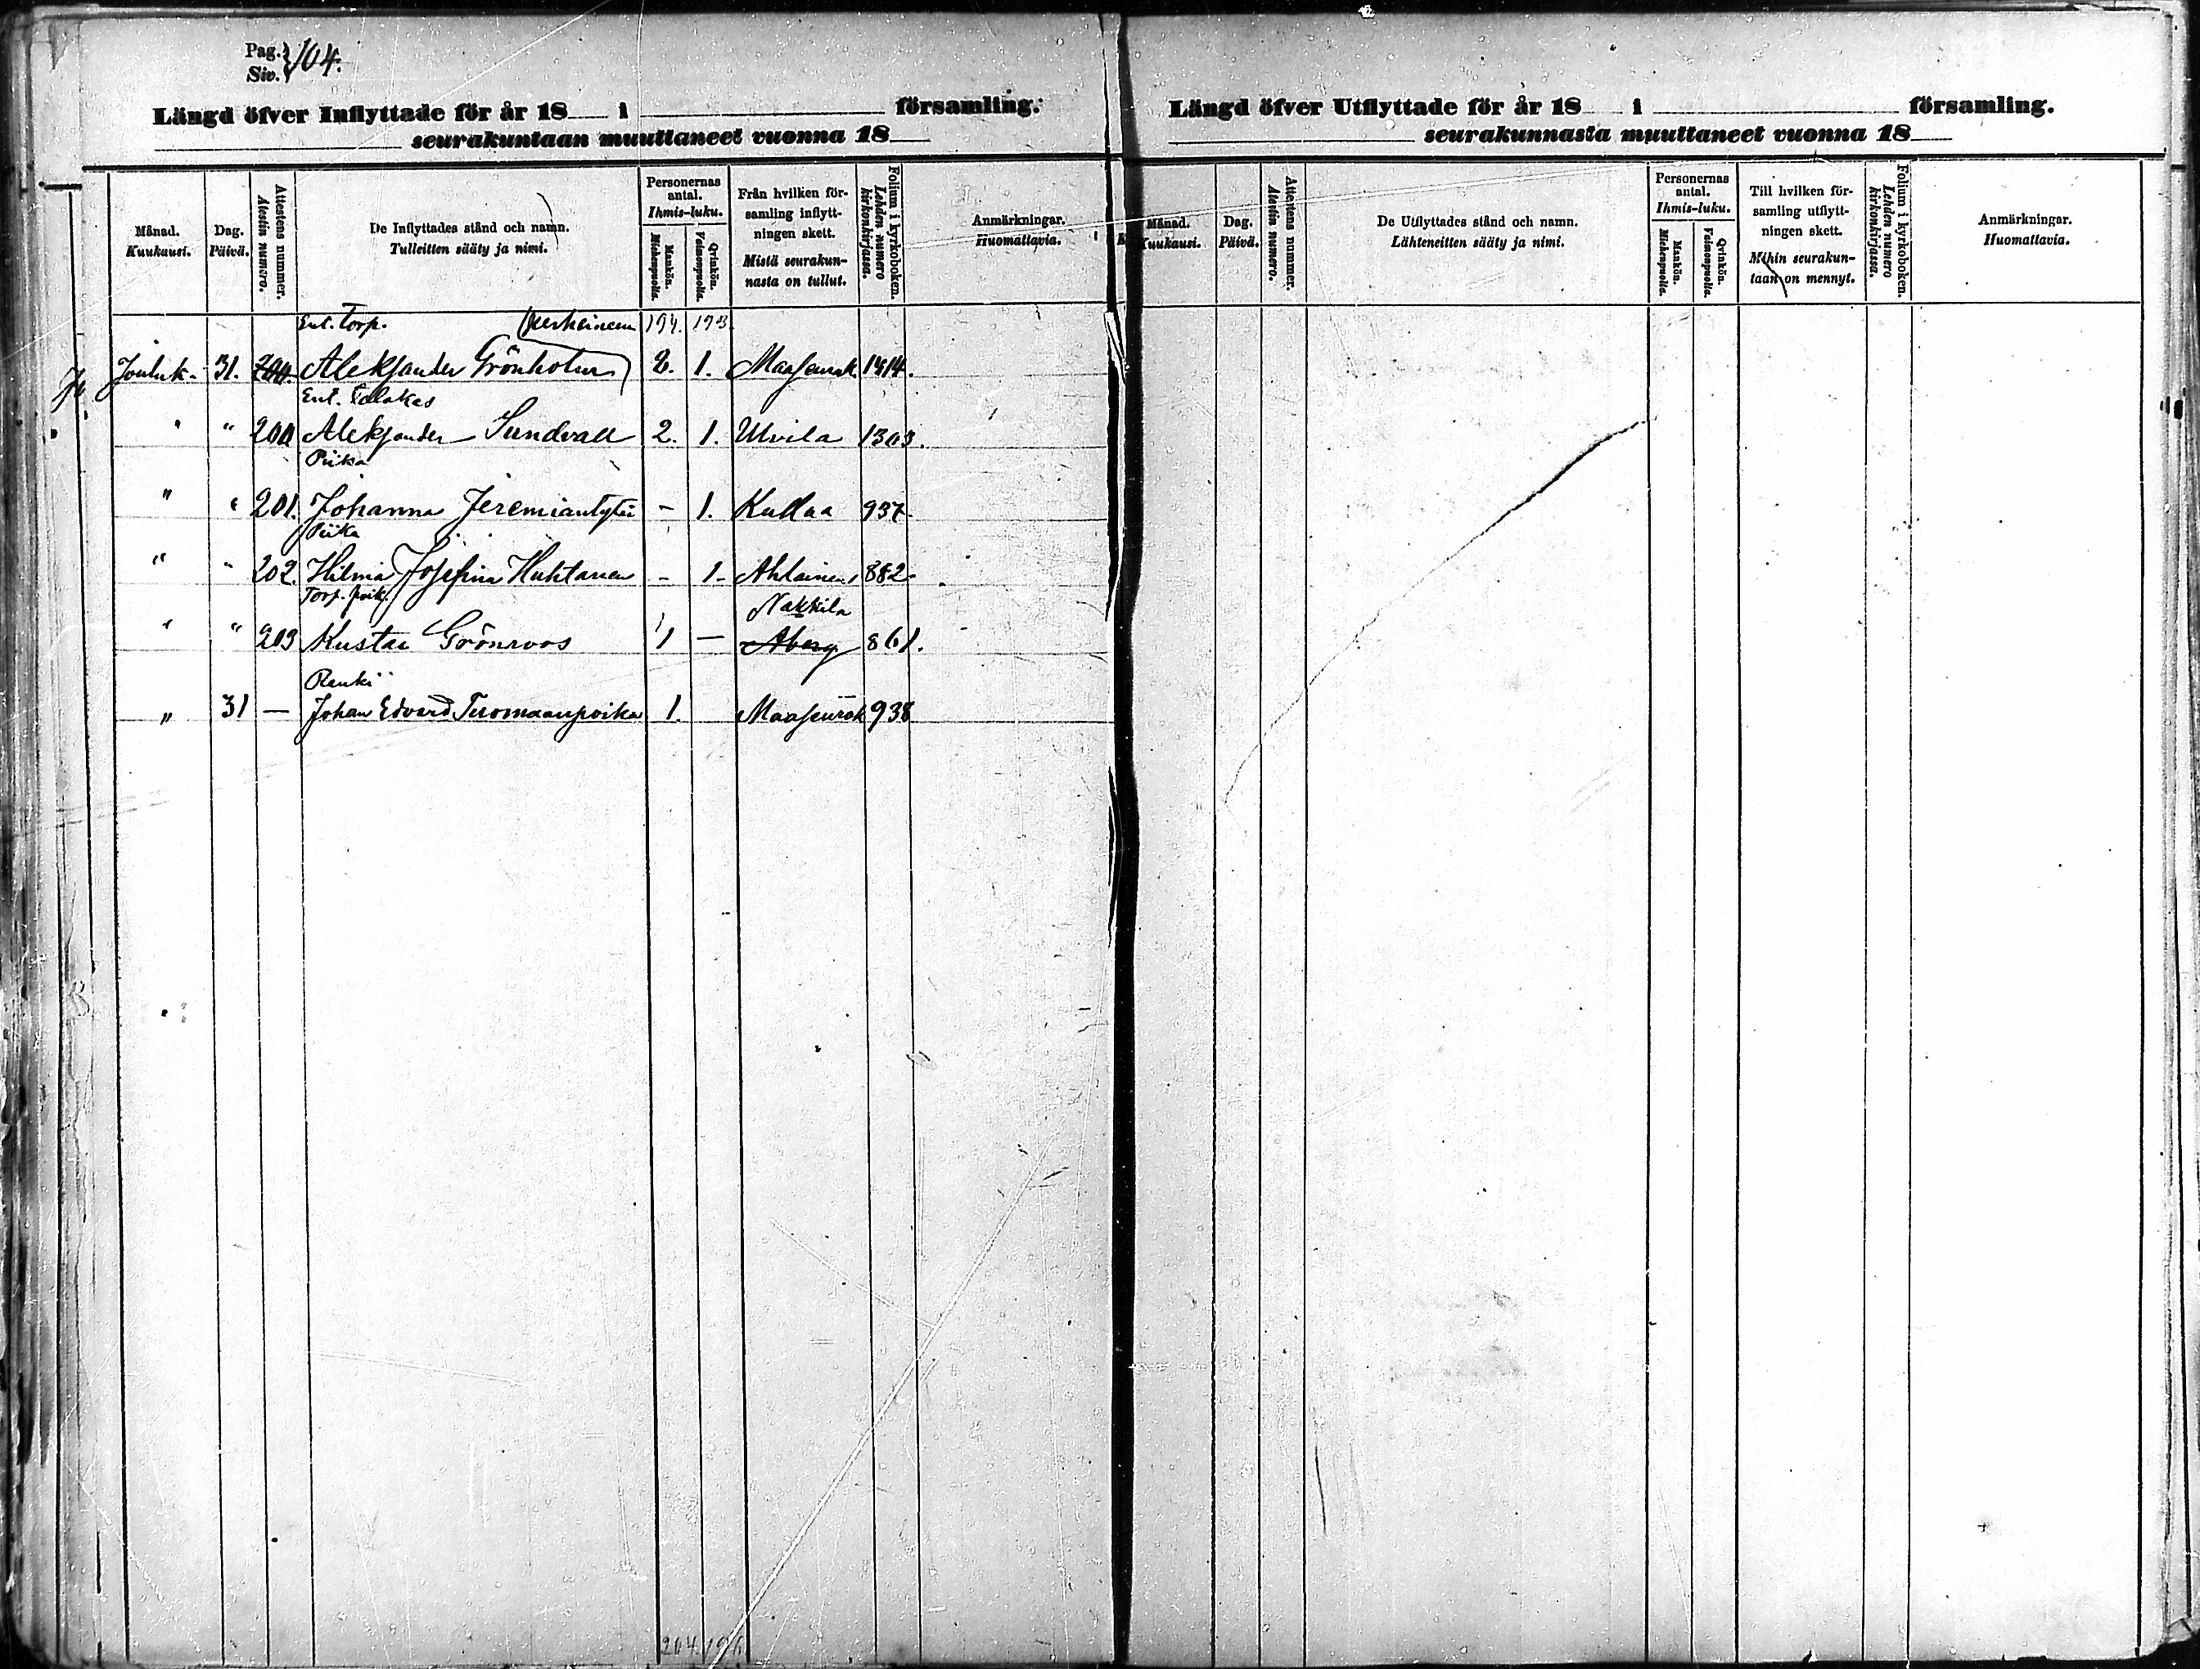 Pag. 104.
Siv.
Längd öfver Inflyttade för år 18 i församling.
seurakuntaan muuttaneet vuonna 18
Månad. Kuukausi.
Dag. Päivä.
Attestens nummer. Atestin numero.
De Inflyttades stånd och namn.
Tulleitten sääty ja nimi.
Personernas antal.
Ihmis-luku.
Mankön. Miehenpuolia.
Qvinkön. Vaimonpuolia.
Från hvilken för-
samling inflytt-
ningen skett.
Mistä seurakun-
nasta on tullut.
Folium i kyrkoboken.
Lehden numero kirkonkirjassa.
Anmärkningar.
Huomattavia.
Ent. Torp. perheineen 194. 193.
Jouluk. 31. 200. Aleksander Grönholm 2. 1. Maaseurak. 1414.
Ent. Talokas
" " 200 Aleksander Sundvall 2. 1. Ulvila 1303.
Piika
" " 201. Johanna Jeremiantytär - 1. Kullaa 937.
Piika
" " 202. Hilma Josefina Huhtanen - 1 - Ahlainen 882.
Torp. poik. Nakkila
" " 203 Kustaa Grönroos 1 — Aberg 861.
Renki
" 31 — Johan Edvard Tuomaanpoika 1. Maaseurak 938
204. 196.
Längd öfver Utflyttade för år 18 i församling.
seurakunnasta muuttaneet vuonna 18
Månad. Kuukausi.
Dag. Päivä.
Attestens nummer. Atestin numero.
De Utflyttades stånd och namn.
Lähteneitten sääty ja nimi.
Personernas antal.
Ihmis-luku.
Mankön. Miehenpuolia.
Qvinkön. Vaimonpuolia.
Till hvilken för-
samling utflytt-
ningen skett.
Mihin seurakun-
taan on mennyt.
Folium i kyrkoboken.
Lehden numero kirkonkirjassa.
Anmärkningar.
Huomattavia.